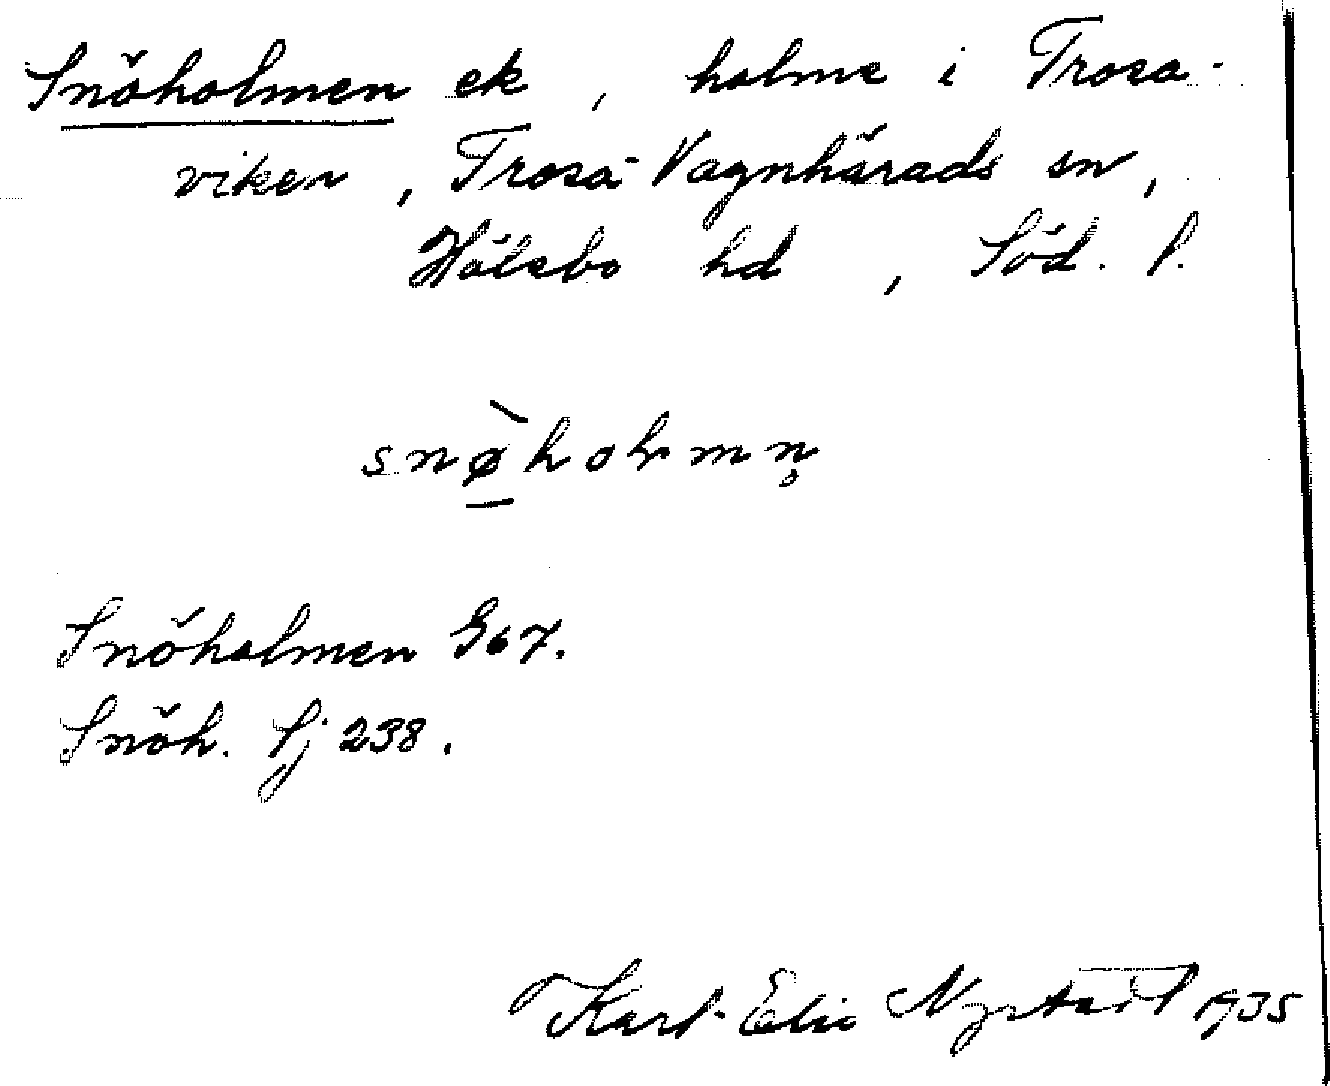 Snöholmen ek, holme i Trosa-
viken, Trosa-Vagnhärads sn,
Hölebo hd, Söd. l.
snø̀holmn̥
Snöholmen G67.
Snöh. Sj 238.
Karl-Elis 1935